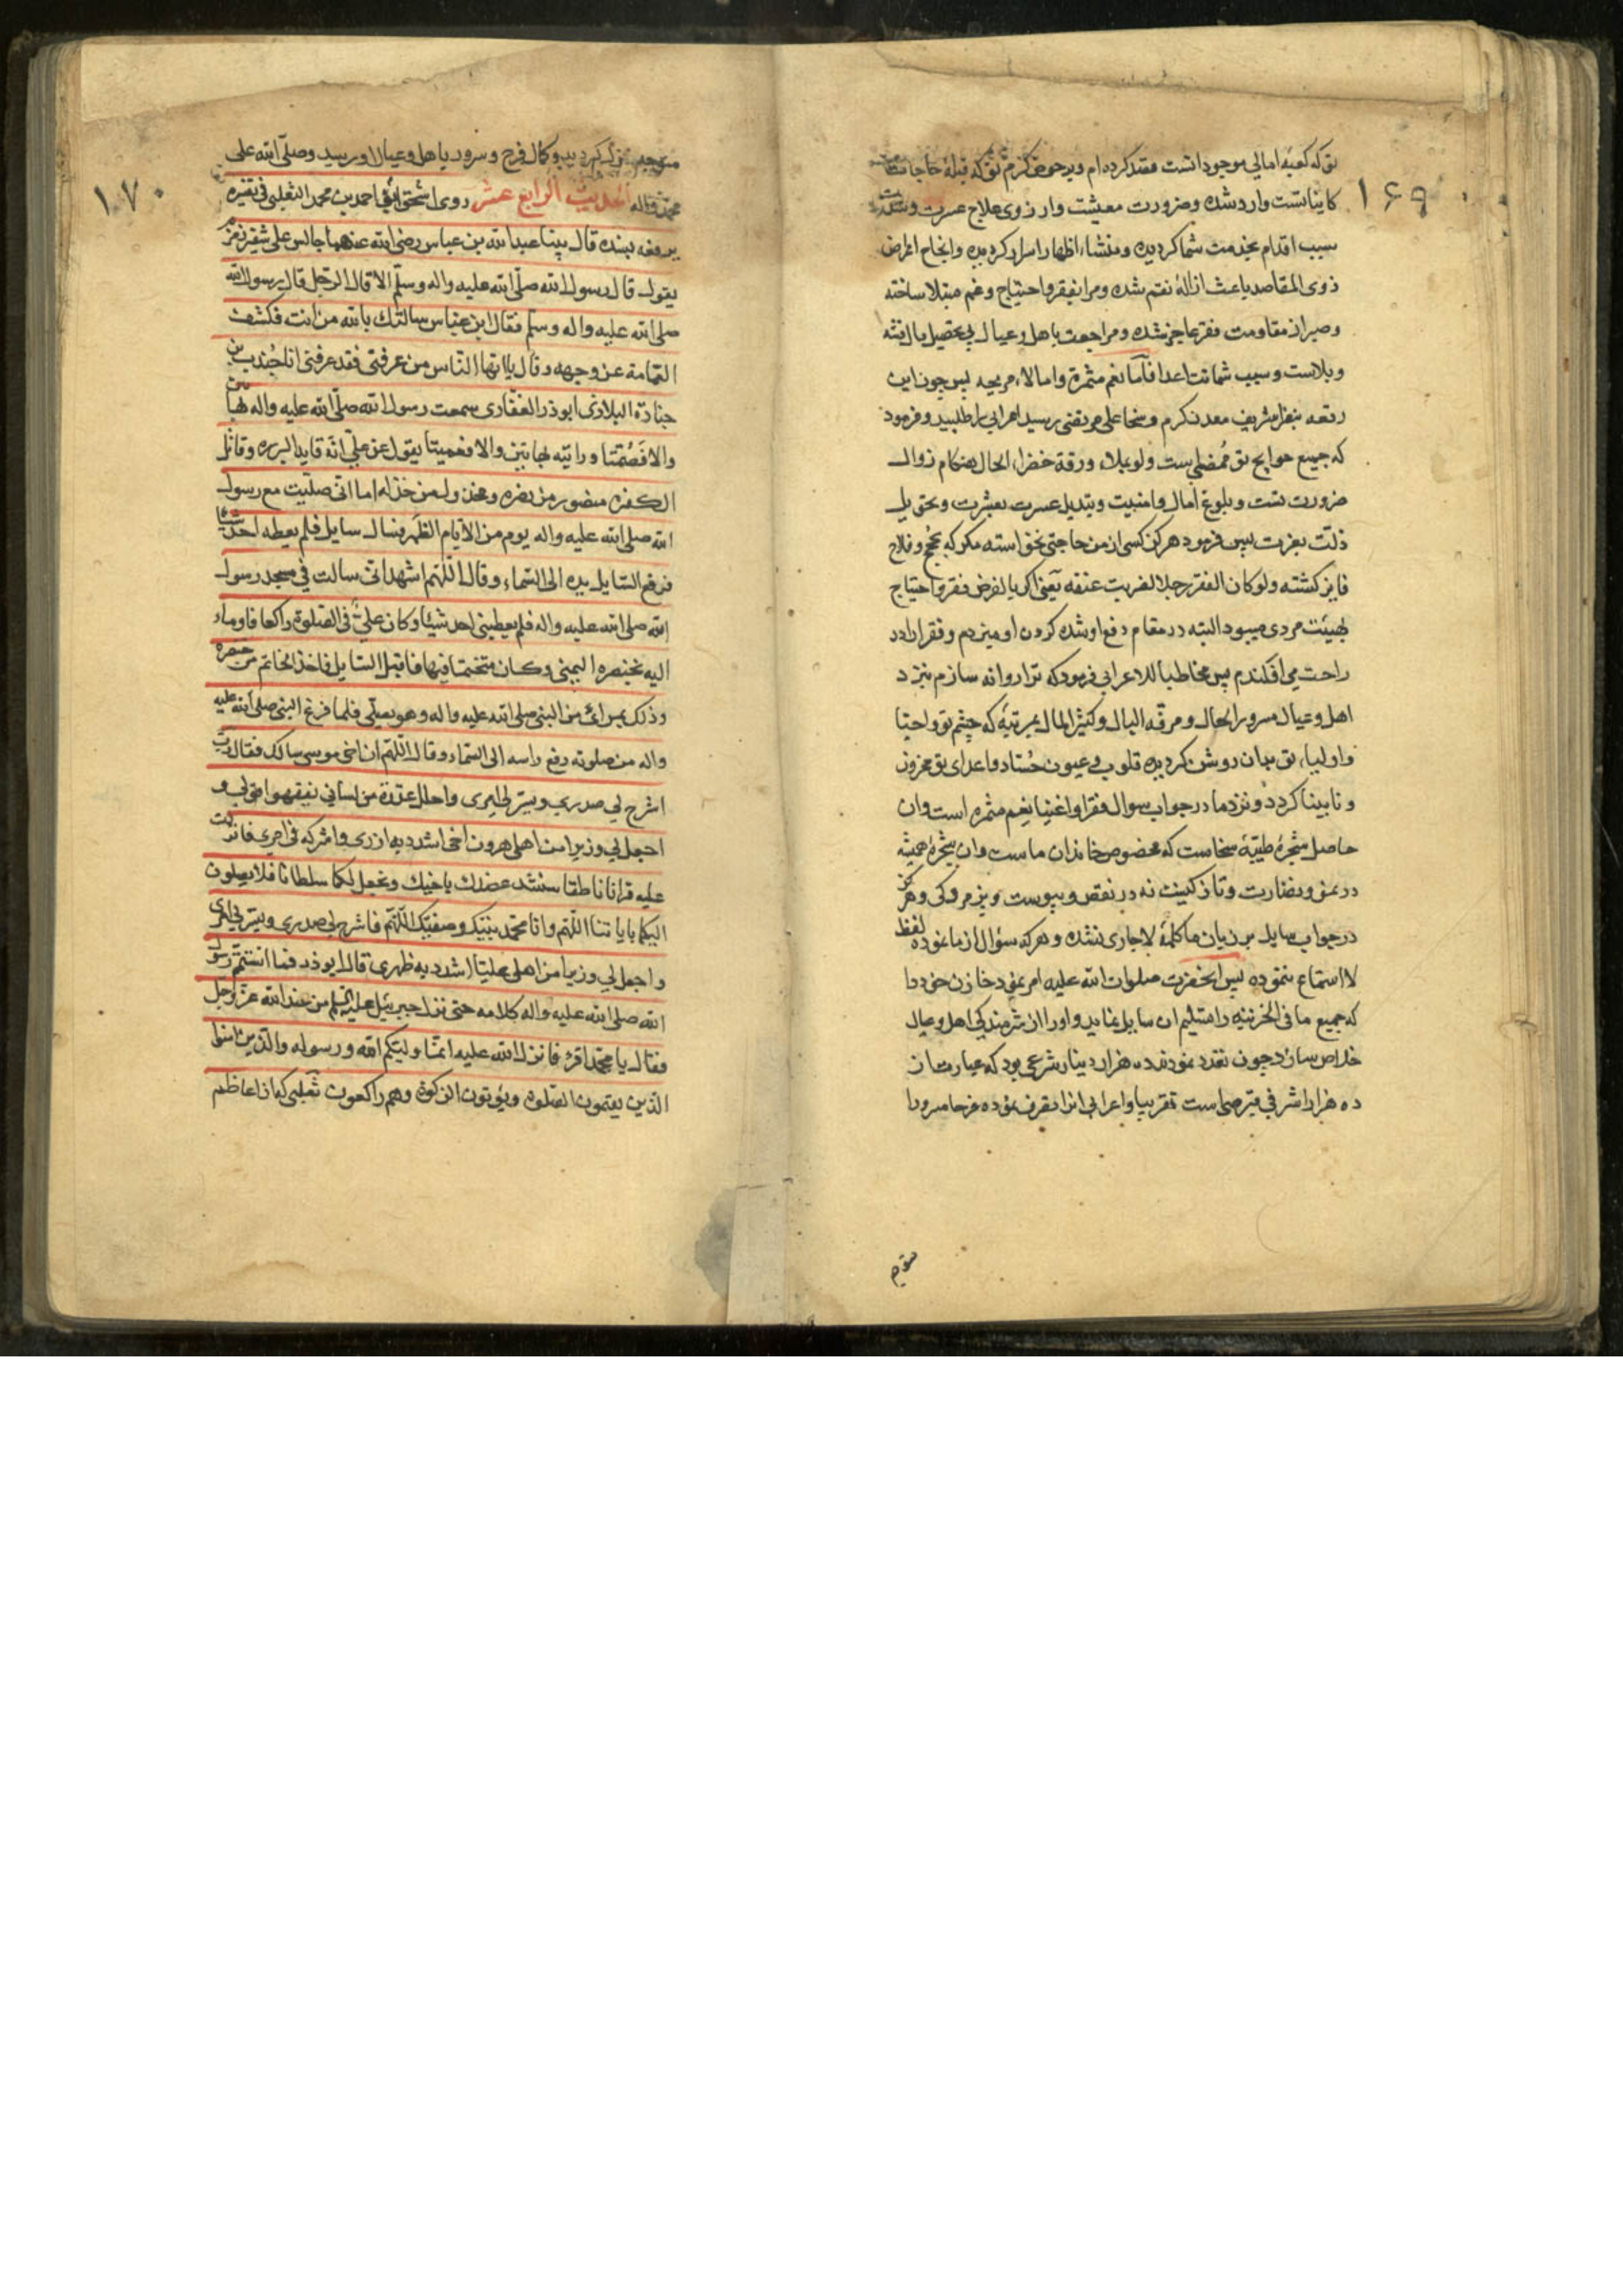 ۱۶۹
تو که کعبهٔ امالی موجود اتست قصد کرده ام و بر حوض کرم تو که قبلهٔ حاجات
کایناتست وارد شده و ضرورت معیشت و ارزوی علاج عسرت و شدت
سبب اقدام بخدمت شما کردیده و منشاء اظهار اسرار کردیده و انجاح اغراض
ذوی المقاصد باعث ازالهٔ نقم شده و مرا بفقر و احتیاج و غم مبتلا ساخته
و صبر از مقاومت فقر عاجز شده و مراجعت باهل و عیال بی تحصیل مال فتنه
و بلاست و سبب شماتت اعدا فآمّا نعم مثمرة و اما لاء مریحه پس چون این
رقعه بنظر شریف معدن کرم و سخا علی مرتضی رسید اعرابی را طلبید و فرمود
که جمیع حوایج تو مُمضی است ولو علا ورقة خضراء الحال هنکام زوال
ضرورت تست و بلوغ امال و امنیت و تبدیل عسرت بعشرت و تحویل
ذلت بعزت پس فرمود هرکز کسی از من حاجتی نخواسته مکر که بنجح و فلاح
فایز کشته ولو کان الفقر رجلا لضربت عنقه یعنی اکر بالفرض فقر و احتیاج
بهیئت مردی میبود البته در مقام دفع او شده کردن او میزدم و فقرا را در
راحت می افکندم پس مخاطبا للاعرابی فرمود که ترا روانه سازم بنزد
اهل و عیال مسرور الحال و مرفه البال و کثیر المال بمرتبهٔ که چشم تو و احبا
و اولیاء تو بدان روشن کردیده قلوب و عیون حُسّاد و اعدای تو محزون
و نابینا کردد و نزد ما در جواب سوال فقرا و اغنیا نعم مثمره است و ان
حاصل شجرهٔ طیّبهٔ سخاست که مخصوص خاندان ماست و ان شجره همیشه
در نمو و نضارت و تازکیست نه در نقص و یبوست و پژمردکی و هرکز
در جواب سایل بر زبان ما کلمهٔ لا جاری نشده و هرکه سؤال از ما نموده لفظ
لا استماع ننموده پس انحضرت صلوات الله علیه امر نمود خازن خود را
که جمیع ما فی الخزینه را تسلیم ان سایل نماید و او را از شرمندکی اهل و عیال
خلاص سازد چون تعدد نمودند ده هزار دینار شرعی بود که عبارت از
ده هزار اشرفی است تقریبا و اعرابی انرا تصرف نموده فرحا مسرورا
۱۷۰
متوجه منزل کردید و کمال فرح و سرور باهل و عیال او رسید و صلّی الله علی
محمد و اله الحدیث الرابع عشر روی ابو اسحق احمد بن محمد الثعلبی فی تفسیره
یرفعه بسنده قال بینا عبدالله بن عباس رضی الله عنهما جالس علی شفیر زمزم
یقول قال رسول الله صلّی الله علیه واله وسلّم الا قال الرّجل قال رسول الله
صلی الله علیه واله وسلّم فقال ابن عباس سالتک بالله من انت فکشف
العمامة عن وجهه وقال یا ایّها النّاس من عرفنی فقد عرفنی انا جُندب بن
جنادة البلادی ابوذر الغفاری سمعت رسول الله صلّی الله علیه واله بهاتین
والا فَصُمّتا ورایته بهاتین والا فعمیتا یقول عن علیّ انّه قاید البرره وقاتل
الکفره منصور من نصره و مخذول من خذله اما انی صلّیت مع رسول
الله صلی الله علیه واله یوم من الایام الظهر فسال سایل فلم یعطه احد شیئا
فرفع السایل یده الی السّماء وقال اللّهم اشهد انی سالت فی مسجد رسول
الله صلی الله علیه واله فلم یعطینی احد شیئا وکان علیّ فی الصّلوة راکعا فاوماء
الیه بخنصره الیمنی وکان متختما فیها فاقبل السّایل فاخذ الخاتم من خنصره
وذلک بمرائ من النبی صلی الله علیه واله وهو یصلّی فلما فرغ النبی صلی الله علیه
واله من صلوته رفع راسه الی السّماء وقال اللّهم ان اخی موسی سالک فقال ربّ
اشرح لی صدری ویسّر لی امری واحلل عقدة من لسانی یفقهوا قولی و
اجعل لی وزیرا من اهلی هرون اخی اشدد به ازری واشرکه فی امری فانزلت
علیه قرانا ناطقا سنشد عضدک باخیک ونجعل لکما سلطانا فلا یصلون
الیکما بایاتنا اللّهم وانا محمّد نبیّک وصفیّک اللّهم فاشرح لی صدری ویسّر لی امری
واجعل لی وزیرا من اهلی علیّا اشدد به ظهری قال ابوذر فما استتمّ رسول
الله صلی الله علیه واله کلامه حتی نزل جبرئیل علیه السّلم من عند الله عزّ وجل
فقال یا محمّد اقرء فانزل الله علیه انّما ولیّکم الله ورسوله والّذین امنوا
الذین یقیمون الصّلوة ویؤتون الزکوة وهم راکعون ثعلبی که از اعاظم